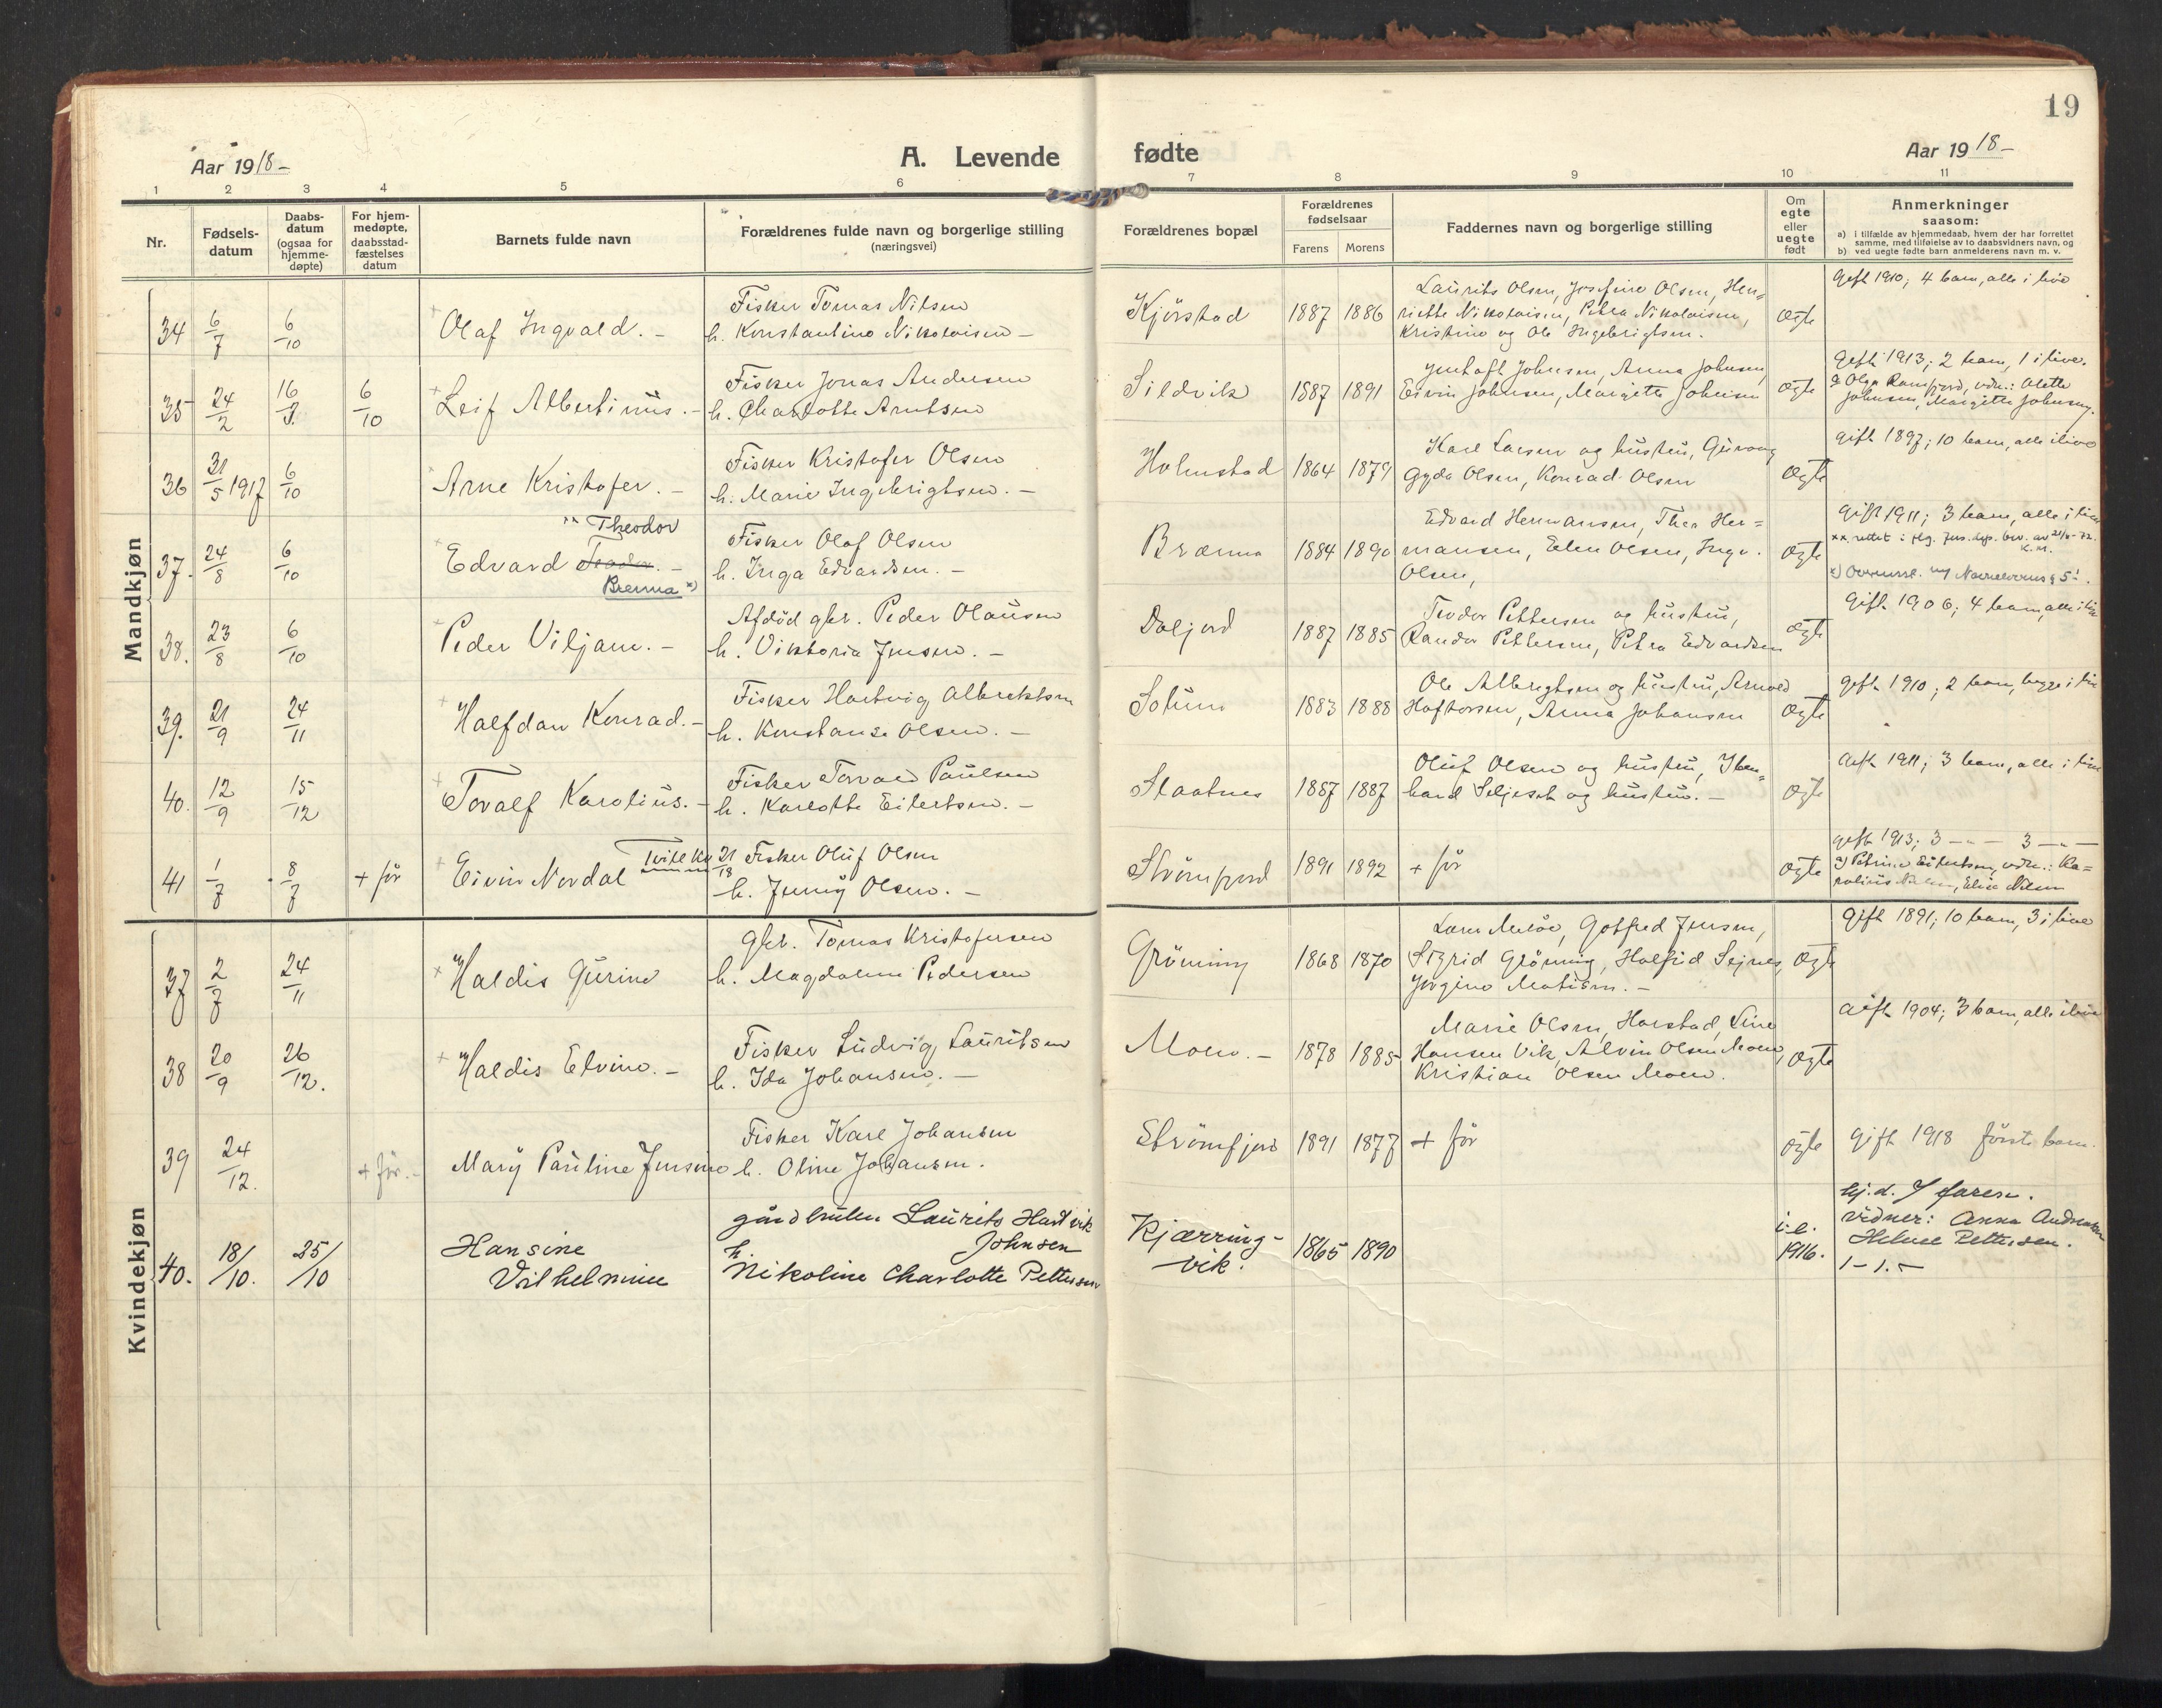 19
Aar 1918-
A. Levende fødte
Aar 1918-
1 2 3 4 5 6 7 8 9 10 11
Nr.
Fødsels-
datum
Daabs-
datum
(ogsaa for
hjemme-
døpte)
For hjem-
medøpte,
daabsstad-
fæstelses
datum
Barnets fulde navn
Forældrenes fulde navn og borgerlige stilling
(næringsvei)
Forældrenes bopæl
Forældrenes
fødselsaar
Farens Morens
Faddernes navn og borgerlige stilling
Om
egte
eller
uegte
født
Anmerkninger
saasom:
a) i tilfælde av hjemmedaab, hvem der har forrettet
samme, med tilføielse av to daabsvidners navn, og
b) ved uegte fødte barn anmelderens navn m. v.
Mandkjøn
34 6/7 6/10 Olaf Ingvald. -
Fisker Tomas Nilsen
h. Konstantine Nikolaisen -
Kjörstad 1887 1886
Laurits Olsen, Josefine Olsen, Hen=
riette Nikolaisen, Petra Nikolaisen,
Kristine og Ole Ingebrigtsen.
ægte
Gift 1910; 4 barn, alle i live
35 24/2 16/3. 6/10 Leif Albertinus. -
Fisker Jonas Andersen
h. Charlotte Arntsen
Sildvik 1887 1891
Johnsen, Anna Johnsen,
Eivin Johnsen, Margitte Johnsen
ægte
Gift 1913; 2 barn, 1 i live.
Olga Ramfjord, vidn.: Olette
Johnsen, Margitte Johnsen.
36 31/5 1917 6/10 Arne Kristofer. -
Fisker Kristofer Olsen
h. Marie Ingebrigtsen. -
Holmstad 1864 1879
Karl Larsen og hustru, Guvaag
Gyda Olsen, Konrad Olsen
ægte
gift 1897; 10 barn, alle i live
37. 24/8 6/10 xx Theodor
Edvard Teodor. -
Brenna x)
Fisker Olaf Olsen
h. Inga Edvardsen. -
Brænna 1884 1890
Edvard Hermansen, Thea Her=
mansen, Elen Olsen, Inga
Olsen,
ægte
Gift 1911; 3 barn, alle i live
xx rettet i flg. Jus. dep. bev. av 21/6-72.
K.M.
38. 23/8 6/10 Peder Viljam. -
Afdöd gbr. Peder Olausen
h. Viktoria Jensen. -
Daljord 1887 1885
Teodor Pettersen og hustru,
Randor Pettersen, Petra Edvardsen
ægte
Gift 1906; 4 barn, alle i live
39. 21/9 24/11 Halfdan Konrad. -
Fisker Hartvig Albrektsen
h. Konstanse Olsen. -
Solum 1883 1888
Ole Albrigtsen og hustru, Arnold
Haftorsen, Anna Johansen
ægte
gift 1910; 2 barn, begge i live
40. 12/9 15/12 Toralf Karolius. -
Fisker Torvald Paulsen
h. Karlotte Eilertsen. -
Slaatnes 1887 1887
Oluf Olsen og hustru, Iben=
hard Seljeset og hustru. -
ægte
Gift 1911; 3 barn, alle i live
41 1/7 8/7 + för Eivin Nordal
21/18 Fisker Oluf Olsen
h. Jenny Olsen. -
Strömfjord 1891 1892 + för
ægte
gift 1913; 3 -"- 3 -"-
x) Petrine Eilertsen, vidn.: Ka=
rolius Nilsen, Elise Nilsen
Kvindekjøn
37 2/7 24/11 Haldis Gurine
Gbr. Tomas Kristofersen
h. Magdalene Pedersen
Gröning 1868 1870
Gotfred Jensen,
Sigrid Gröning, Halfrid Sejnes,
Jorgine Matisen. -
ægte
Gift 1891; 10 barn, 3 i live
38 20/9 26/12. Haldis Elvine. -
Fisker Ludvig Lauritsen
h. Ida Johansen. -
Moen. - 1878 1885
Marie Olsen, Harstad, Line
Hansen Vik, Alvin Olsen Moen,
Kristian Olsen Moen.
ægte
Gift 1904; 3 barn, alle i live
39 24/12. + för. - Mary Pauline Jensine
Fisker Karl Johansen
h. Oline Johansen.
Strömfjord 1891 1877 + för
ægte
Gift 1918 förste barn.
40. 18/10. 25/10 Hansine
Vilhelmine
gårdbruker Laurits Hartvik
Johnsen
h.
Nikoline Charlotte Pettersen
Kjærring-
vik. 1865 1890
i.e.
1916.
hj.d. v/ faren.
Vidner: Anna Andreassen
Helene Pettersen.
1-1.-